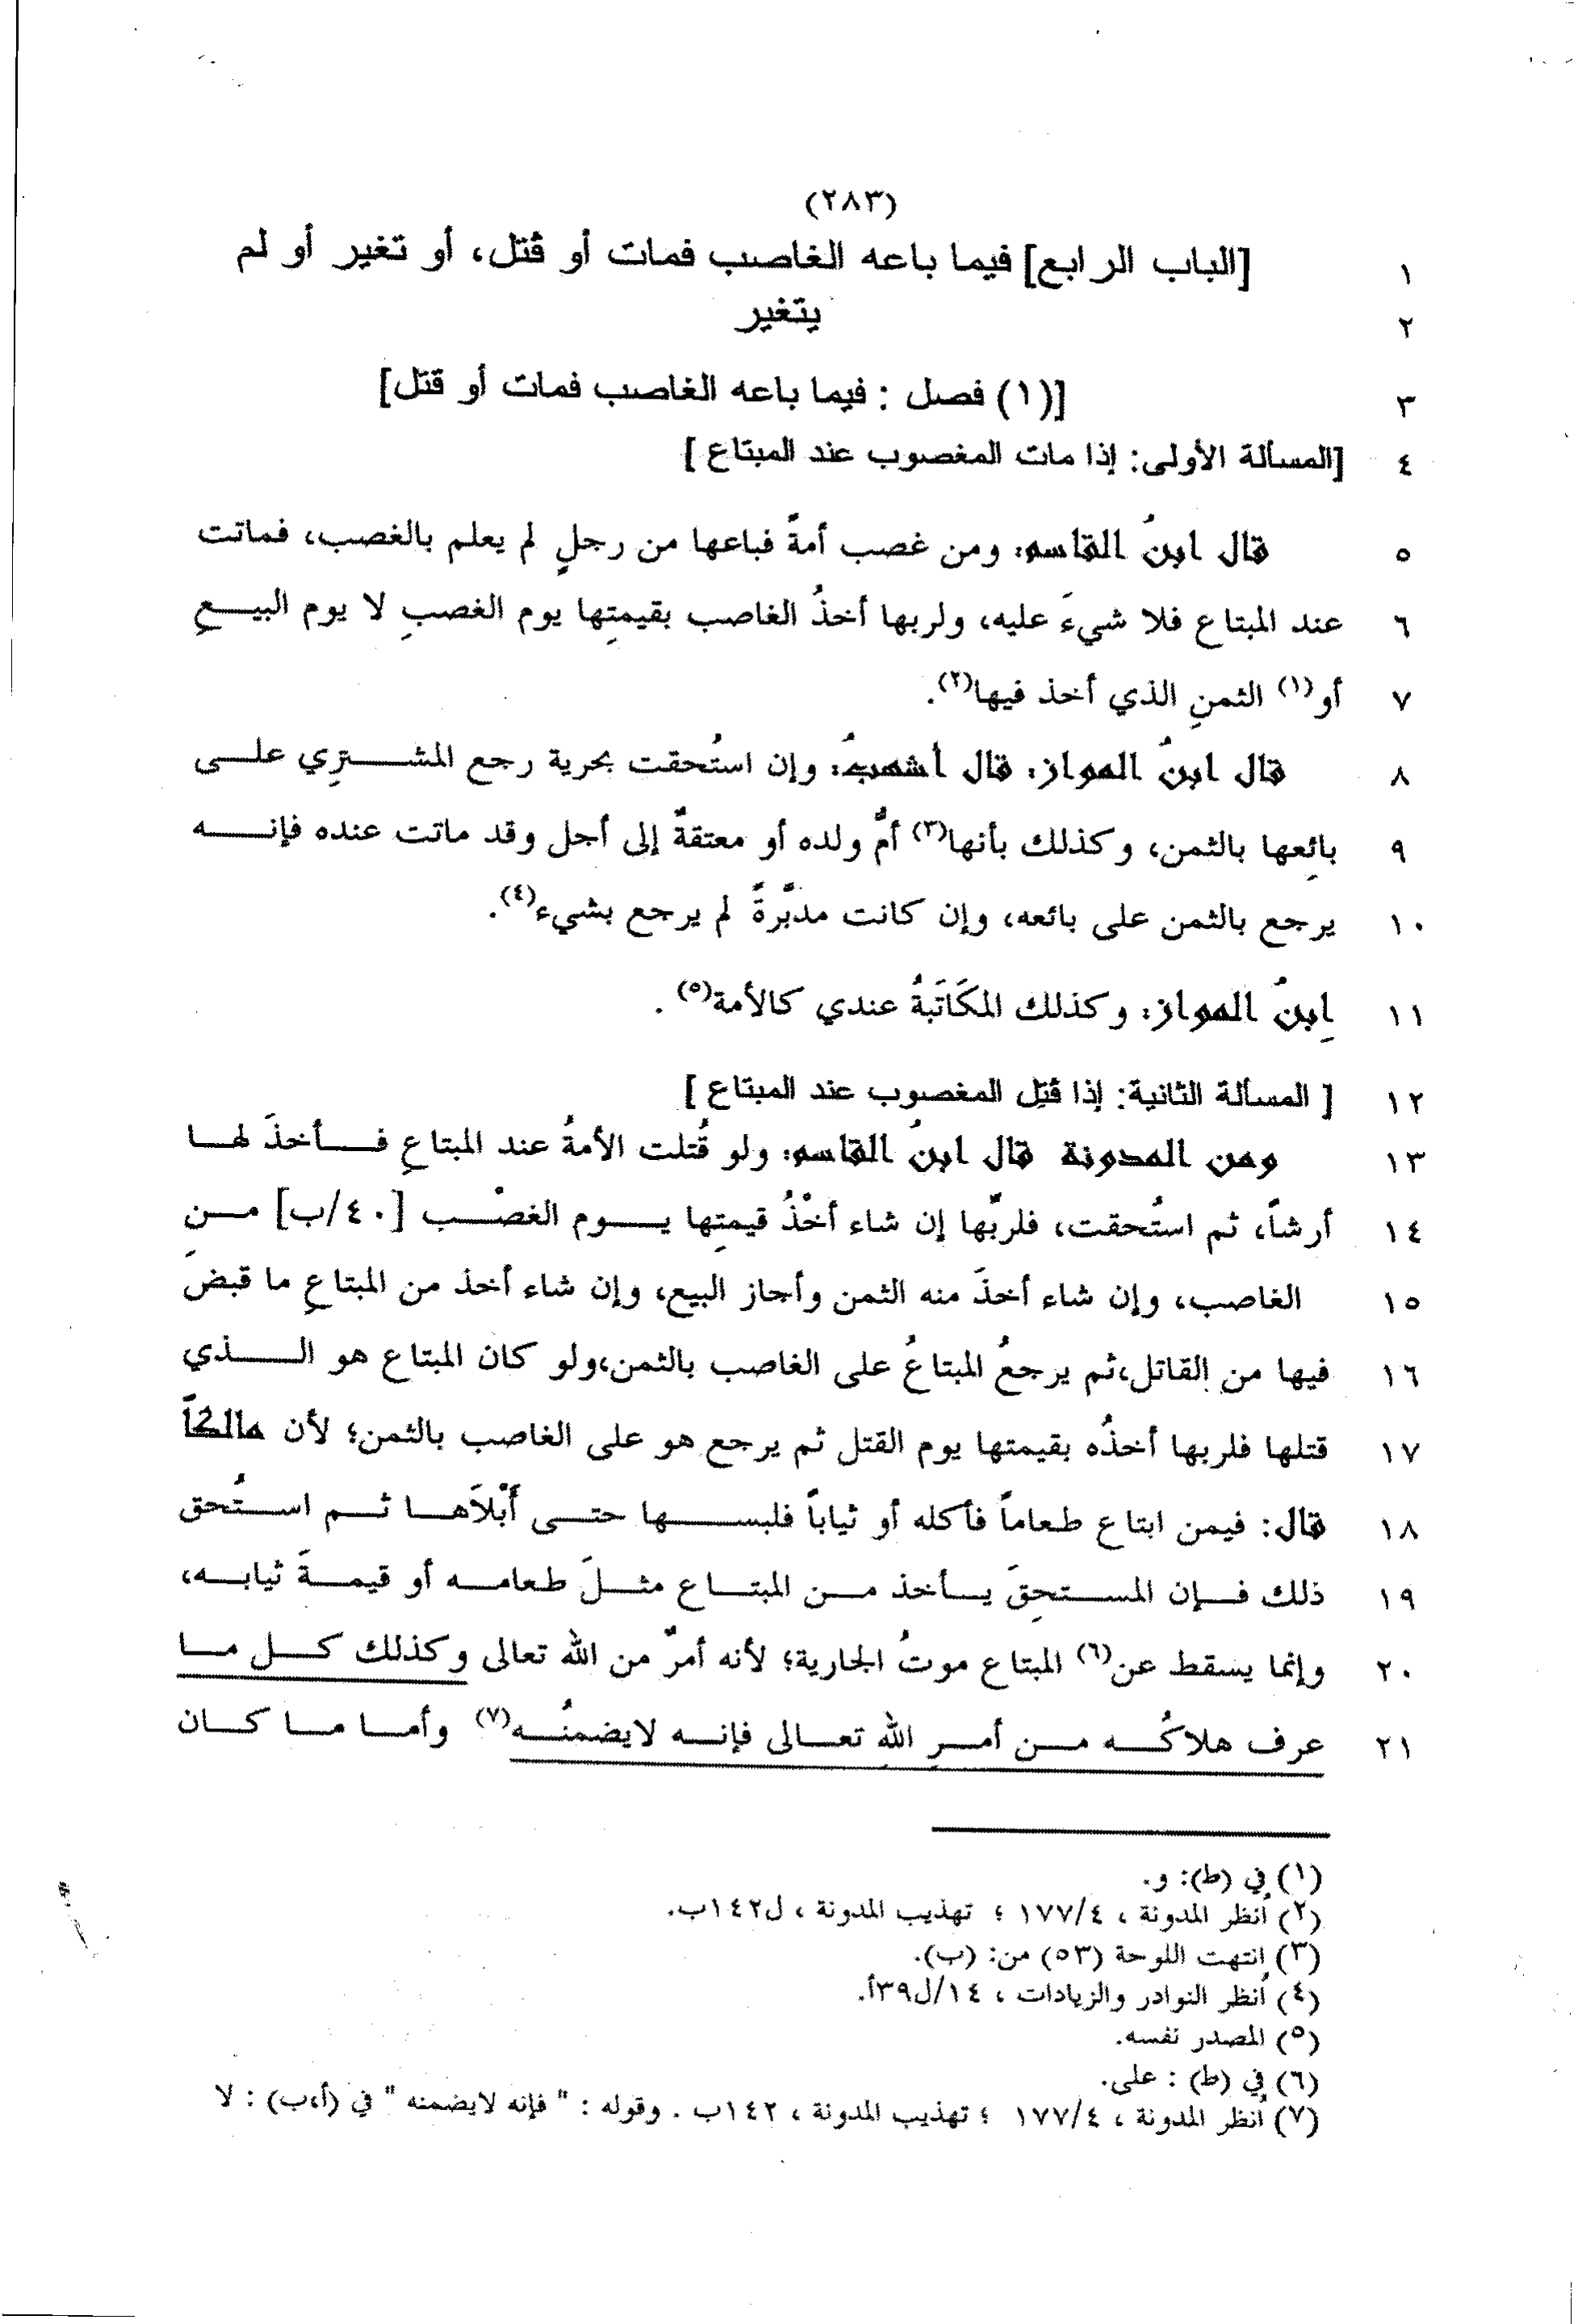 (٢٨٣)
١ [الباب الرابع] فيما باعه الغاصب فمات أو قُتل، أو تغير أو لم
٢ يتغير
٣ [(١) فصل : فيما باعه الغاصب فمات أو قتل]
٤ [المسألة الأولى: إذا مات المغصوب عند المبتاع ]
٥ قال ابنُ القاسم: ومن غصب أمةً فباعها من رجلٍ لم يعلم بالغصب، فماتت
٦ عند المبتاع فلا شيءَ عليه، ولربها أخذُ الغاصب بقيمتِها يوم الغصبِ لا يوم البيـــعِ
٧ أو(١) الثمنِ الذي أخذ فيها(٢).
٨ قال ابنُ المواز: قال أشهبُ: وإن استُحقت بحرية رجع المشـــترِي علـــى
٩ بائِعها بالثمن، وكذلك بأنها(٣) أمُّ ولده أو معتقةٌ إلى أجل وقد ماتت عنده فإنـــه
١٠ يرجع بالثمن على بائعه، وإن كانت مدبَّرةً لم يرجع بشيء(٤).
١١ إبنُ المواز: وكذلك المكَاتَبةُ عندي كالأمة(٥) .
١٢ [ المسألة الثانية: إذا قُتِل المغصوب عند المبتاع ]
١٣ ومن المدونة قال ابنُ القاسم: ولو قُتلت الأمةُ عند المبتاعِ فـــأخذَ لهـــا
١٤ أرشاً، ثم استُحقت، فلربِّها إن شاء أخْذُ قيمتِها يـــوم الغصْـــب [٤٠/ب] مـــنِ
١٥ الغاصب، وإن شاء أخذَ منه الثمن وأجاز البيع، وإن شاء أخذ من المبتاعِ ما قبضَ
١٦ فيها من القاتل،ثم يرجعُ المبتاعُ على الغاصب بالثمن،ولو كان المبتاع هو الـــذي
١٧ قتلها فلربها أخذُه بقيمتها يوم القتل ثم يرجع هو على الغاصب بالثمن؛ لأن مالكاً
١٨ قال: فيمن ابتاع طعاماً فأكله أو ثياباً فلبســـها حتـــى أَبْلاَهـــا ثـــم استُـــحق
١٩ ذلك فـــإن المســـتحِقَ يـــأخذ مـــن المبتـــاع مثـــلَ طعامـــه أو قيمـــةَ ثيابـــه،
٢٠ وإنما يسقط عن(٦) المبتاع موتُ الجارية؛ لأنه أمرٌ من الله تعالى وكذلك كـــل مـــا
٢١ عرف هلاكُـــه مـــن أمـــرِ اللهِ تعـــالى فإنـــه لايضمنُـــه(٧) وأمـــا مـــا كـــان
(١) في (ط): و.
(٢) أُنظر المدونة ، ١٧٧/٤ ؛ تهذيب المدونة ، ل١٤٢ب.
(٣) إنتهت اللوحة (٥٣) من: (ب).
(٤) أُنظر النوادر والزيادات ، ١٤/ل٣٩أ.
(٥) المصدر نفسه.
(٦) في (ط) : على.
(٧) أُنظر المدونة ، ١٧٧/٤ ؛ تهذيب المدونة ، ١٤٢ب . وقوله : " فإنه لايضمنه " في (أ،ب) : لا